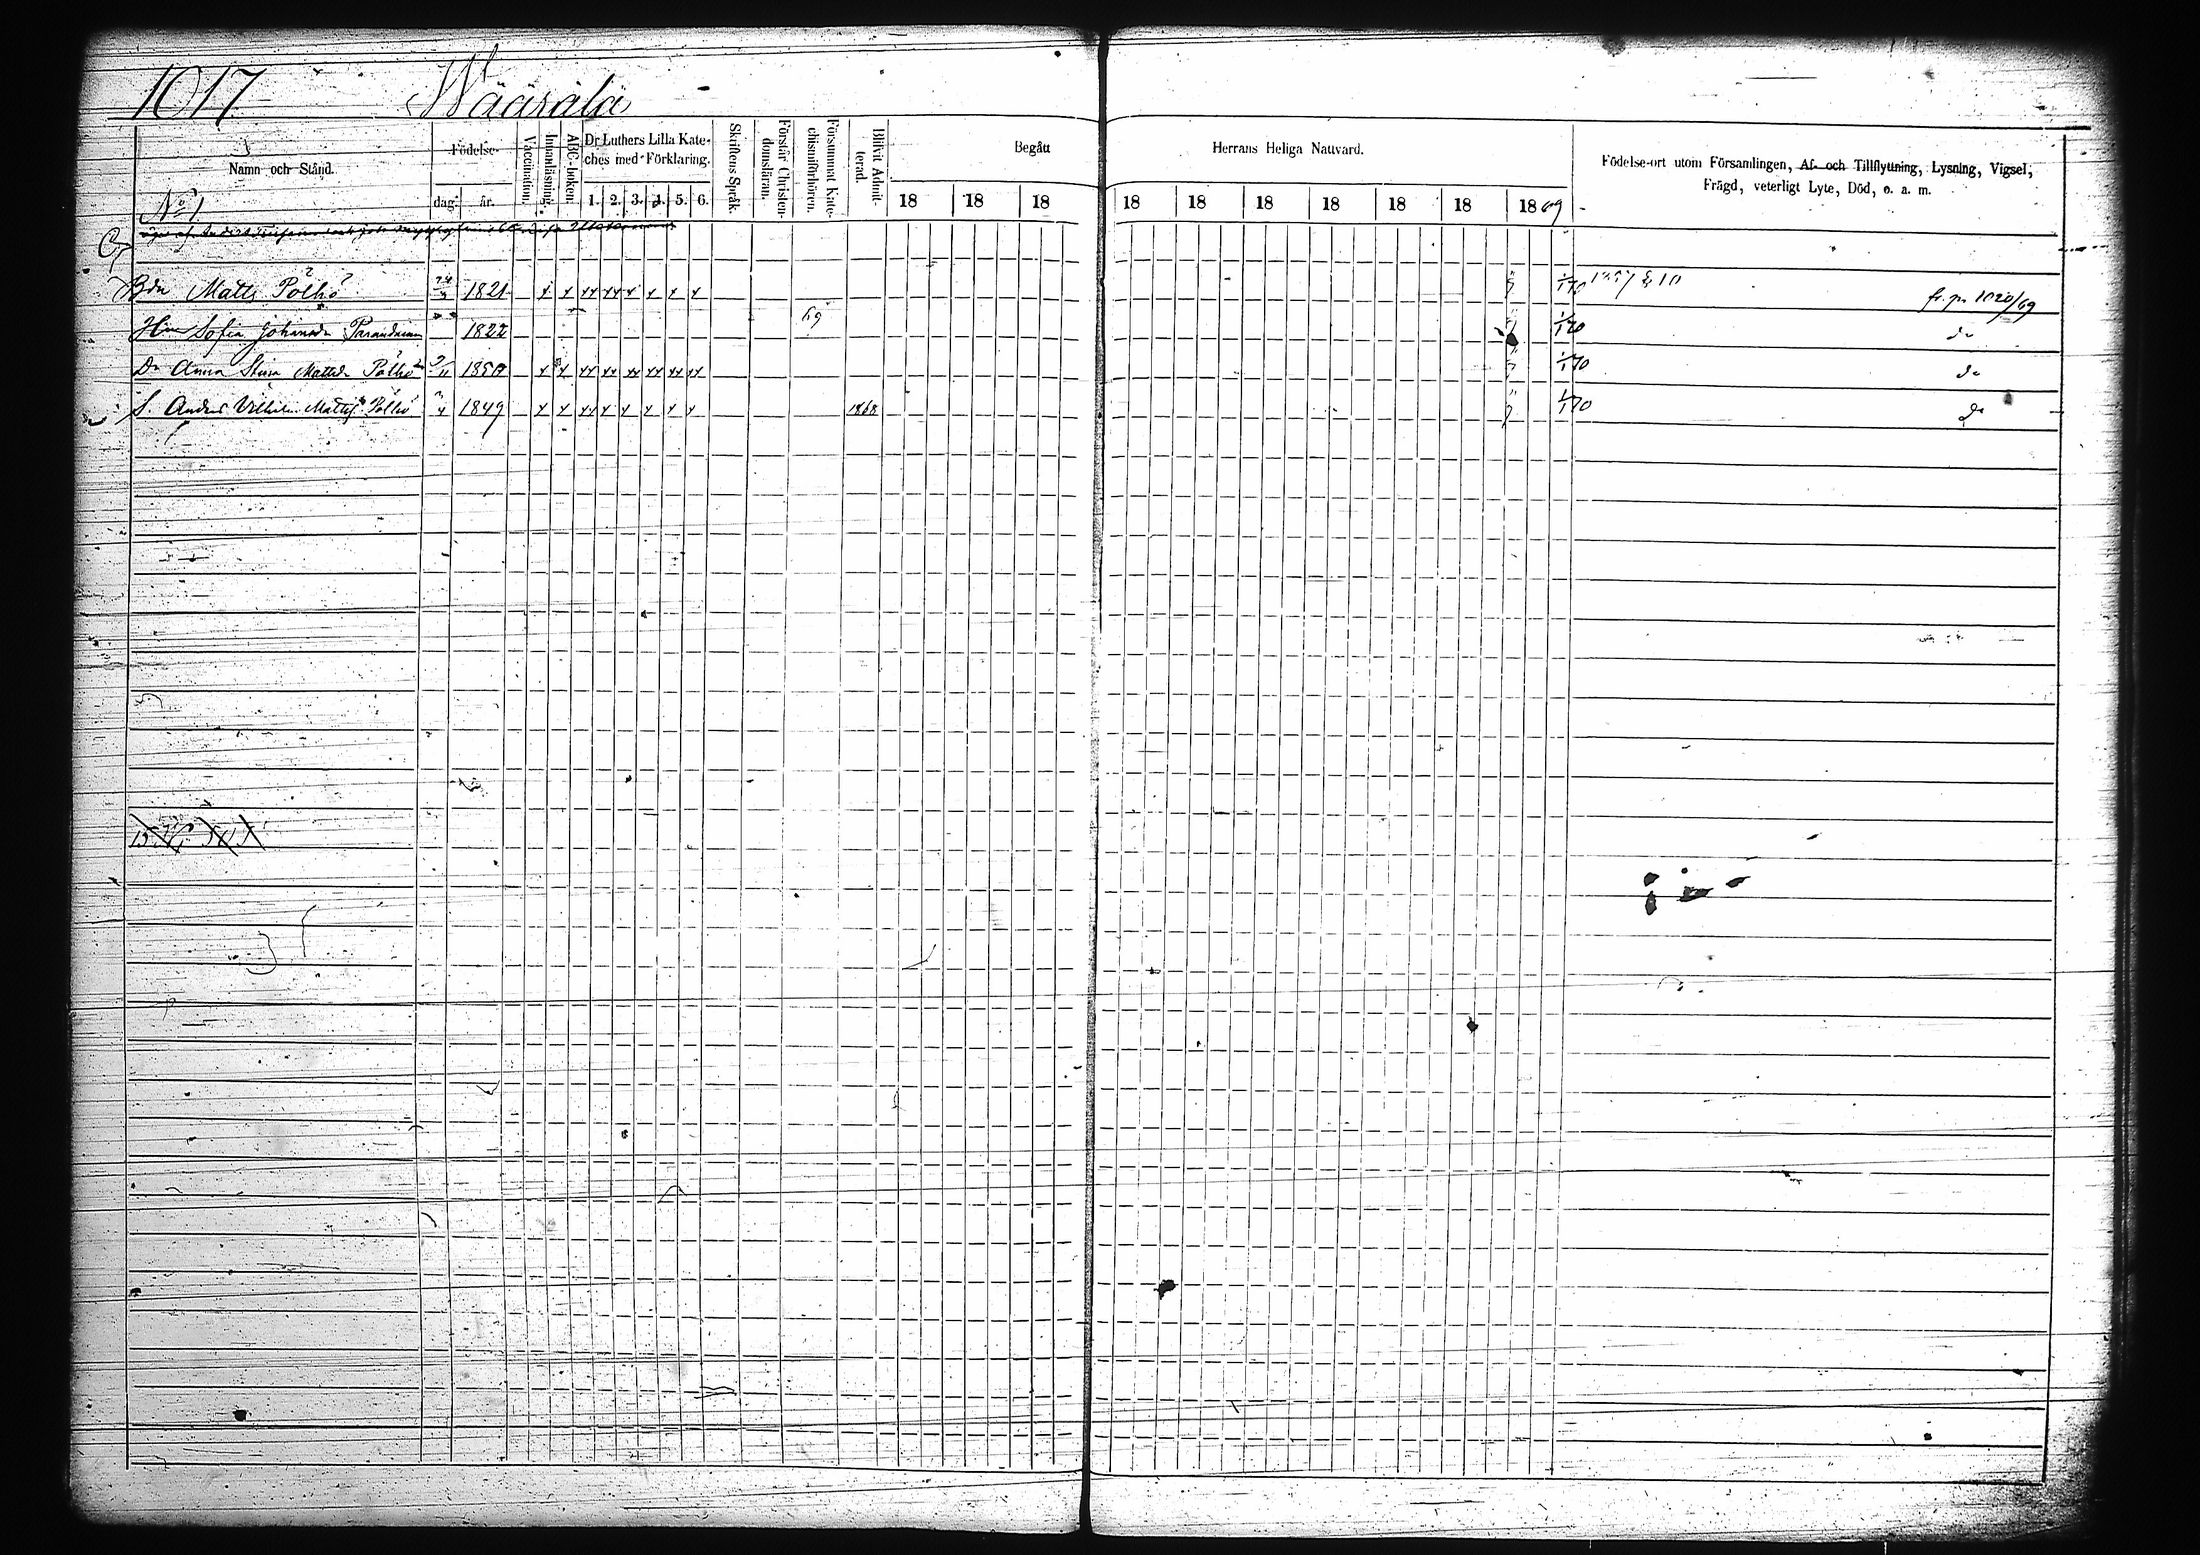 1017 Wääsälä
Namn och Stånd.
Födelse-
dag. år.
Vaccination.
Innanläsning.
ABC-boken.
Dr Luthers Lilla Kate-
ches med Förklaring.
1. 2. 3. 4. 5. 6.
Skriftens Språk.
Förstår Christen-
domsläran.
Försummat Kate-
chismiförhören.
Blifvit Admit-
terad.
Begått Herrans Heliga Nattvard.
18 18 18 18 18 18 18 18 18 1869
Födelse-ort utom Församlingen, Af- och Tillflyttning, Lysning, Vigsel,
Frägd, veterligt Lyte, Död, o. a. m.
No 1
Bdn Matts Pölhö 1821 x x xx xx x x x x 1/1 70 fr. p. 1020/69
Hu Sofia Johansdr 1822 69 1/1 70 do
Dr Anna Stina Mattsdr Pölhö 1850 x x xx xx xx xx xx xx 1/1 70 do
S. Anders Vilhelm Matts Pölhö 1849 x x xx x x x x x 1868 1/1 70 do